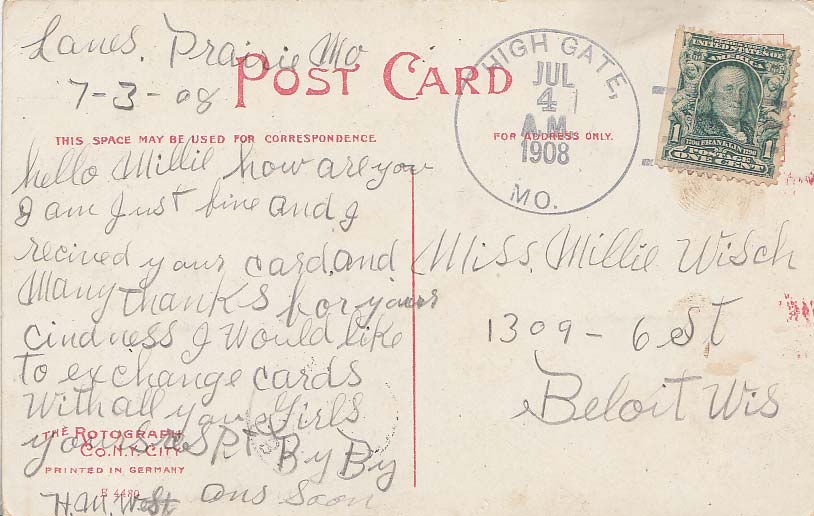 Lanes. Prairie Mo
7-3-08
POST CARD
HIGH GATE,
JUL
4
A.M.
1908
MO.
UNITED STATES OF
AMERICA
1706 FRANKLIN 1790
1 POSTAGE 1
ONE CENT
THIS SPACE MAY BE USED FOR CORRESPONDENCE
FOR ADDRESS ONLY.
hello Millie how are you
I am Just fine and I
recived your card. and
Many thanks for your
cindness I Would like
To exchange cards
With all you Girls
yours respt
By By
H.M. West ans soon
THE ROTOGRAPH
CO. N.Y. CITY
PRINTED IN GERMANY
E 4480
Miss. Millie Wisch
1309 - 6 St
Beloit Wis